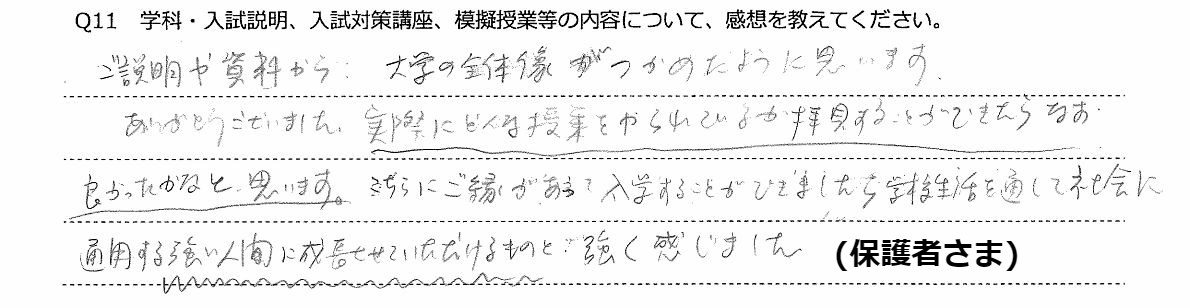 Q11　学科・入試説明、入試対策講座、模擬授業等の内容について、感想を教えてください。
ご説明や資料から、大学の全体像がつかめたように思います。
ありがとうございました。実際にどんな授業をやられているか拝見することができたらなお
良かったかなと思います。こちらにご縁があって入学することができましたら学校生活を通して社会に
通用する強い人間に成長させていただけるものと強く感じました (保護者さま)